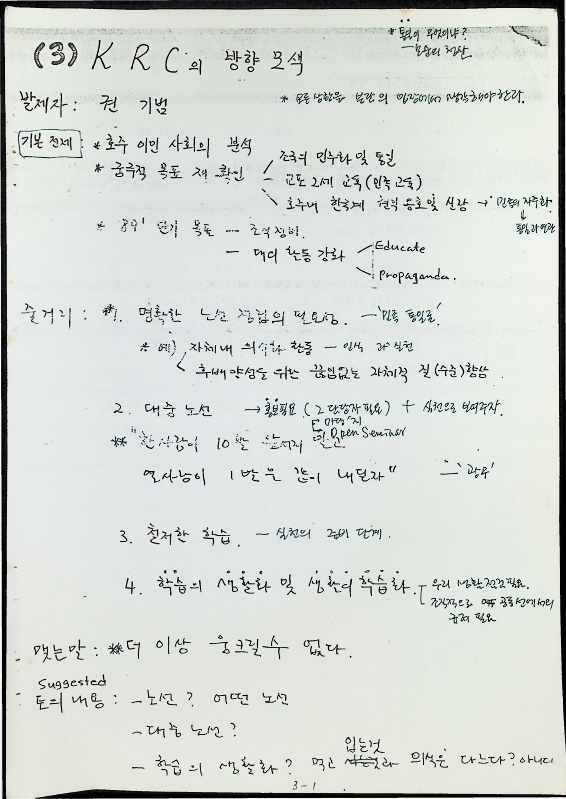 * 통일이 무엇이냐?
— 모순의 청산.
(3) KRC의 방향 모색
발제자: 권 기범
* 모든 상황을 발판의 입장에서 생각해야한다.
기본 전제: * 호주 이민 사회의 분석
* 궁극적 목표 재 확인
조국의 민주화 및 통일
교포 2세 교육 (민족 교육)
호주내 한국계 현익 옹호 및 신장 → 민족의 자주화
통일과 연관
* 89' 단기 목표 — 조직정비
— 대외 활동 강화
Educate
Propaganda.
줄거리: *1. 명확한 노선 정립의 필요성. — '민족 통일로'.
* 예) 자체내 의식화 활동 — 인식 과 실천
후배양성을 위한 끊임없는 자체적 질(수준)향상.
2. 대중 노선 → 홍보필요 (2 담당자 필요) + 실천으로 보여주자.
Open Seminar
** "한 사람이 10발 앞서지 말고
열사람이 1발을 같이 내딛자" —
3. 철저한 학습. — 실천의 준비 단계.
4. 학습의 생활화 및 생활의 학습화.
우리 생활 점검필요.
조직적으로 공동선에서의
규제 필요
맺는말: ** 더 이상 웅크릴수 없다.
Suggested
토의 내용: — 노선? 어떤 노선
— 대중 노선?
입는것
— 학습의 생활화? 먹고 과 의식은 다르다? 아니다
3-1